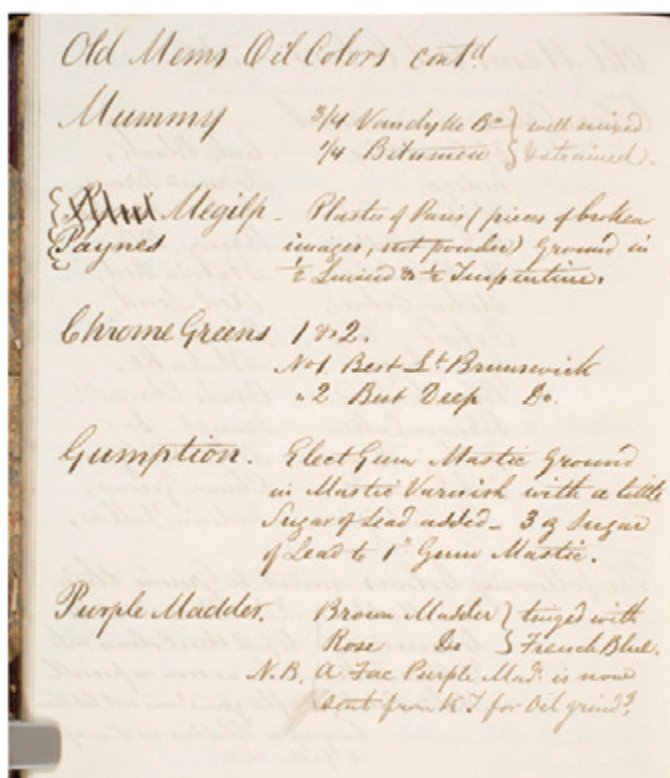 Old Mems Oil Colors contd
Mummy 3/4 Vandyke Bn } well mixed
1/4 Bitumen } & strained.
{ Megilp - Plaster of Paris (pieces of broken
{ Paynes images, not powder) Ground in
1/2 Linseed & 1/2 Turpentine.
Chrome Greens 1 & 2.
No 1 Best Lt Brunswick
" 2 Best Deep Do.
Gumption. Elect Gum Mastic Ground
in Mastic Varnish with a little
Sugar of Lead added - 3 oz Sugar
of Lead to 1 lb Gum Mastic.
Purple Madder. Brown Madder } tinged with
Rose Do } French Blue.
N.B. A Fac Purple Mad. is now
sent from K T for Oil grindg.